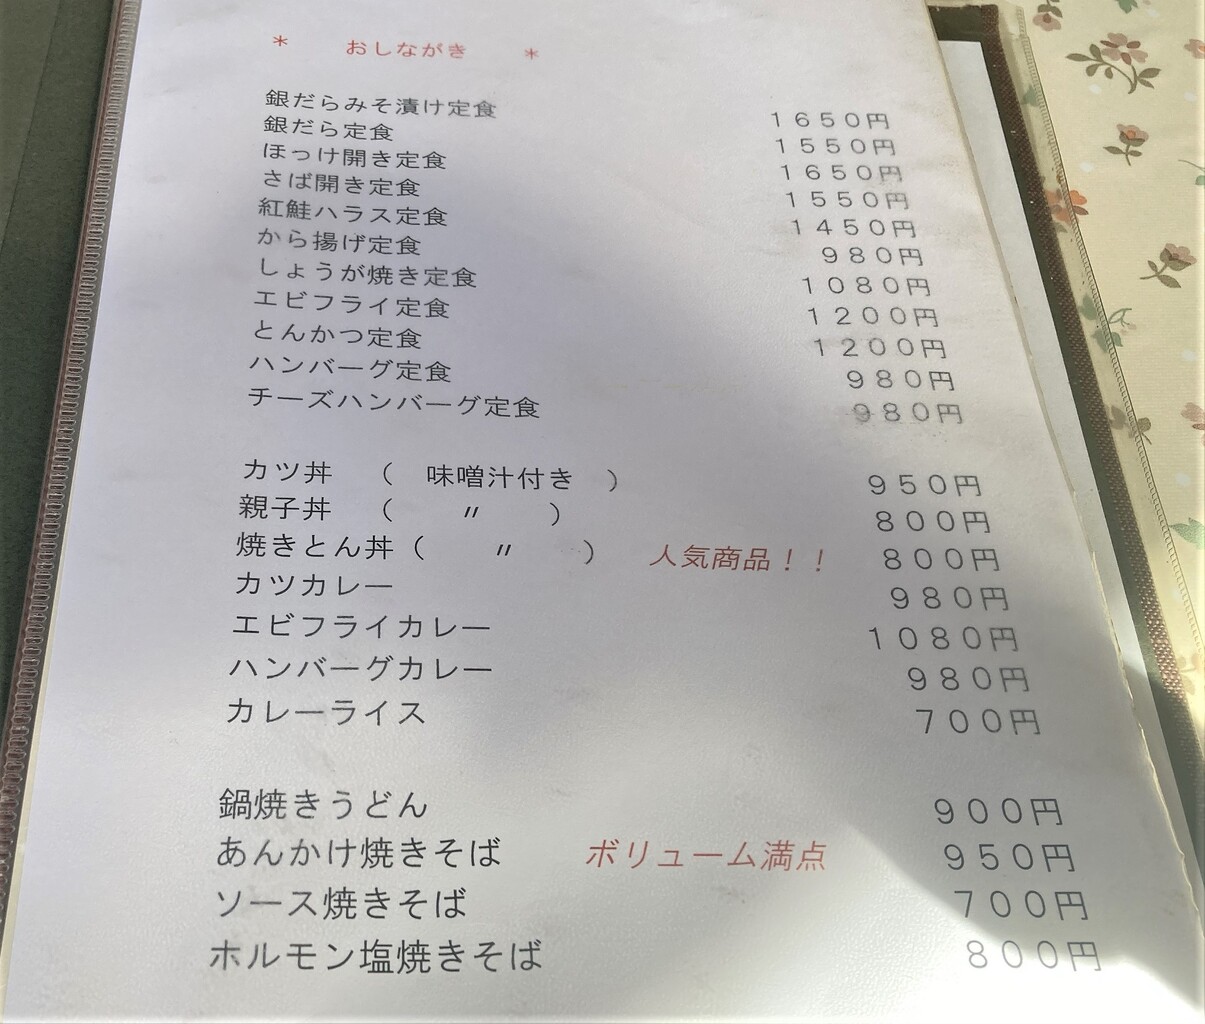 * おしながき *
銀だらみそ漬け定食 1650円
銀だら定食 1550円
ほっけ開き定食 1650円
さば開き定食 1550円
紅鮭ハラス定食 1450円
から揚げ定食 980円
しょうが焼き定食 1080円
エビフライ定食 1200円
とんかつ定食 1200円
ハンバーグ定食 980円
チーズハンバーグ定食 980円
カツ丼 ( 味噌汁付き ) 950円
親子丼 ( 〃 ) 800円
焼きとん丼 ( 〃 ) 人気商品!! 800円
カツカレー 980円
エビフライカレー 1080円
ハンバーグカレー 980円
カレーライス 700円
鍋焼きうどん 900円
あんかけ焼きそば ボリューム満点 950円
ソース焼きそば 700円
ホルモン塩焼きそば 800円